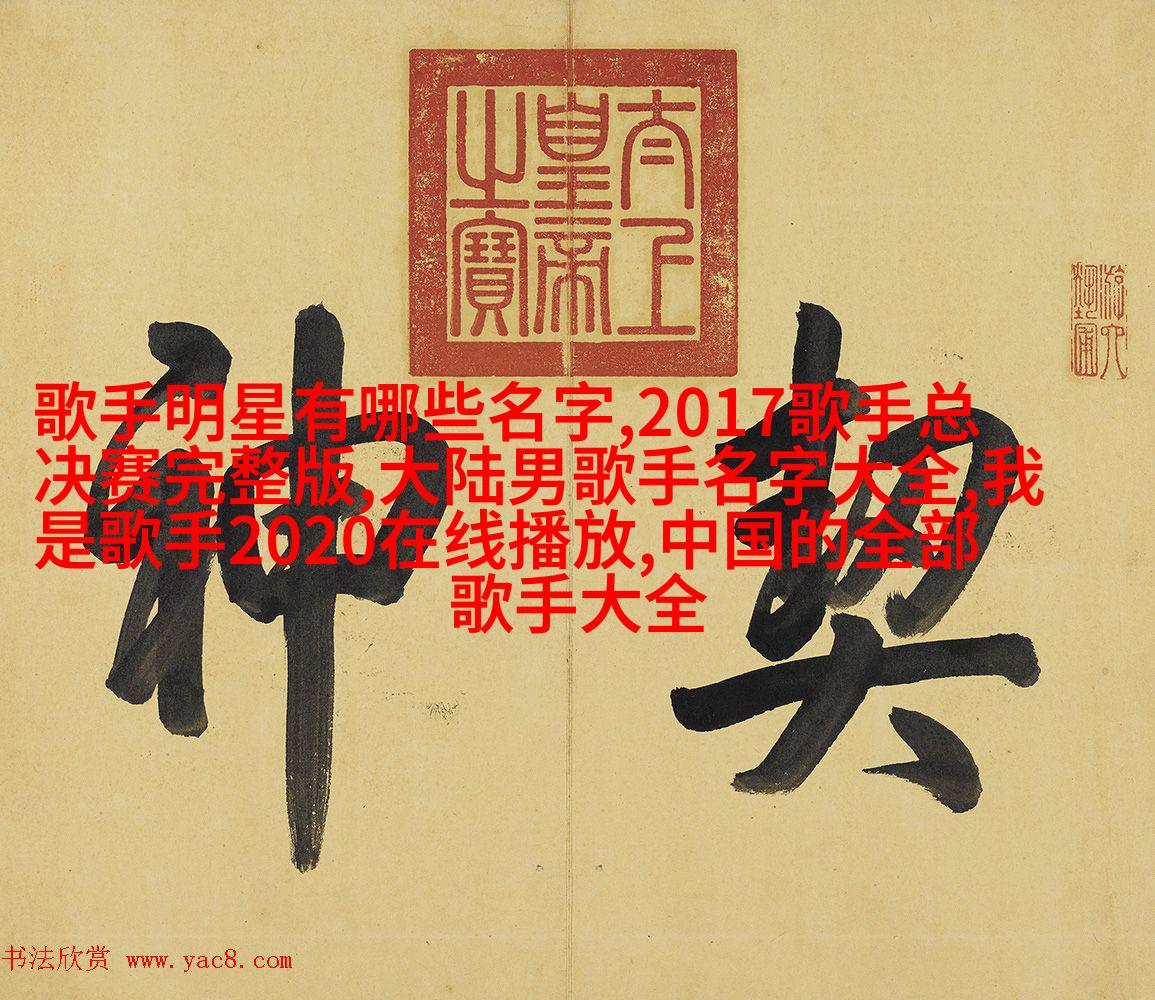 太上
皇帝
之寶
游六
藝圃
契神
歌手明星有哪些名字,2017歌手总
决赛完整版,大陆男歌手名字大全,我
是歌手2020在线播放,中国的全部
歌手大全
书法欣赏 www.yac8.com